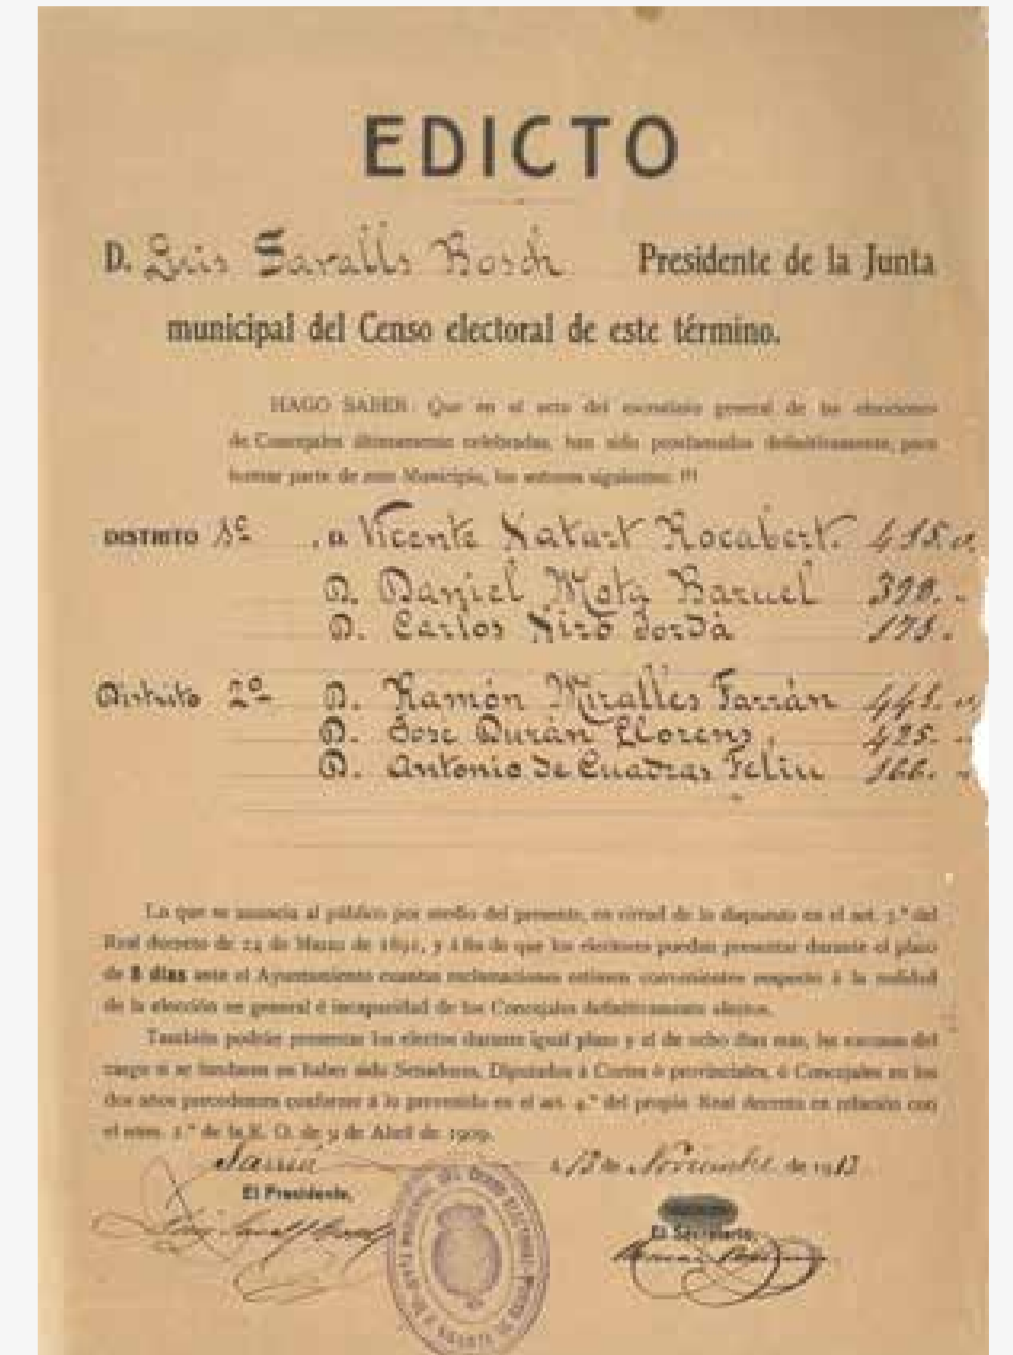 EDICTO
D. Luis Saralls Bosch Presidente de la Junta
municipal del Censo electoral de este término.
HAGO SABER: Que en el acto del escrutinio general de las elecciones
de Concejales últimamente celebradas, han sido proclamados definitivamente, para
formar parte de este Municipio, los señores siguientes:
DISTRITO 1º D. Vicente Natart Rocabert. 415. v.
D. Daniel Mota Baruel 399.
D. Carlos Niró Jordá 175.
Distrito 2º D. Ramón Miralles Farrán 441. v
D. José Durán Llorens, 425.
D. Antonio de Cuadras Feliu 166.
Lo que se anuncia al público por medio del presente, en virtud de lo dispuesto en el art. 3.º del
Real decreto de 24 de Marzo de 1891, y á fin de que los electores puedan presentar durante el plazo
de 8 días ante el Ayuntamiento cuantas reclamaciones estimen convenientes respecto á la nulidad
de la elección en general é incapacidad de los Concejales definitivamente electos.
También podrán presentar los electos durante igual plazo y el de ocho días más, las excusas del
cargo si se fundaren en haber sido Senadores, Diputados á Cortes ó provinciales, ó Concejales en los
dos años precedentes conforme á lo prevenido en el art. 4.º del propio Real decreto en relación con
el núm. 2.º de la R. O. de 9 de Abril de 1909.
Sarriá á 13 de Noviembre de 1913
El Presidente,
El Secretario,
DEL CENSO ELECTORAL